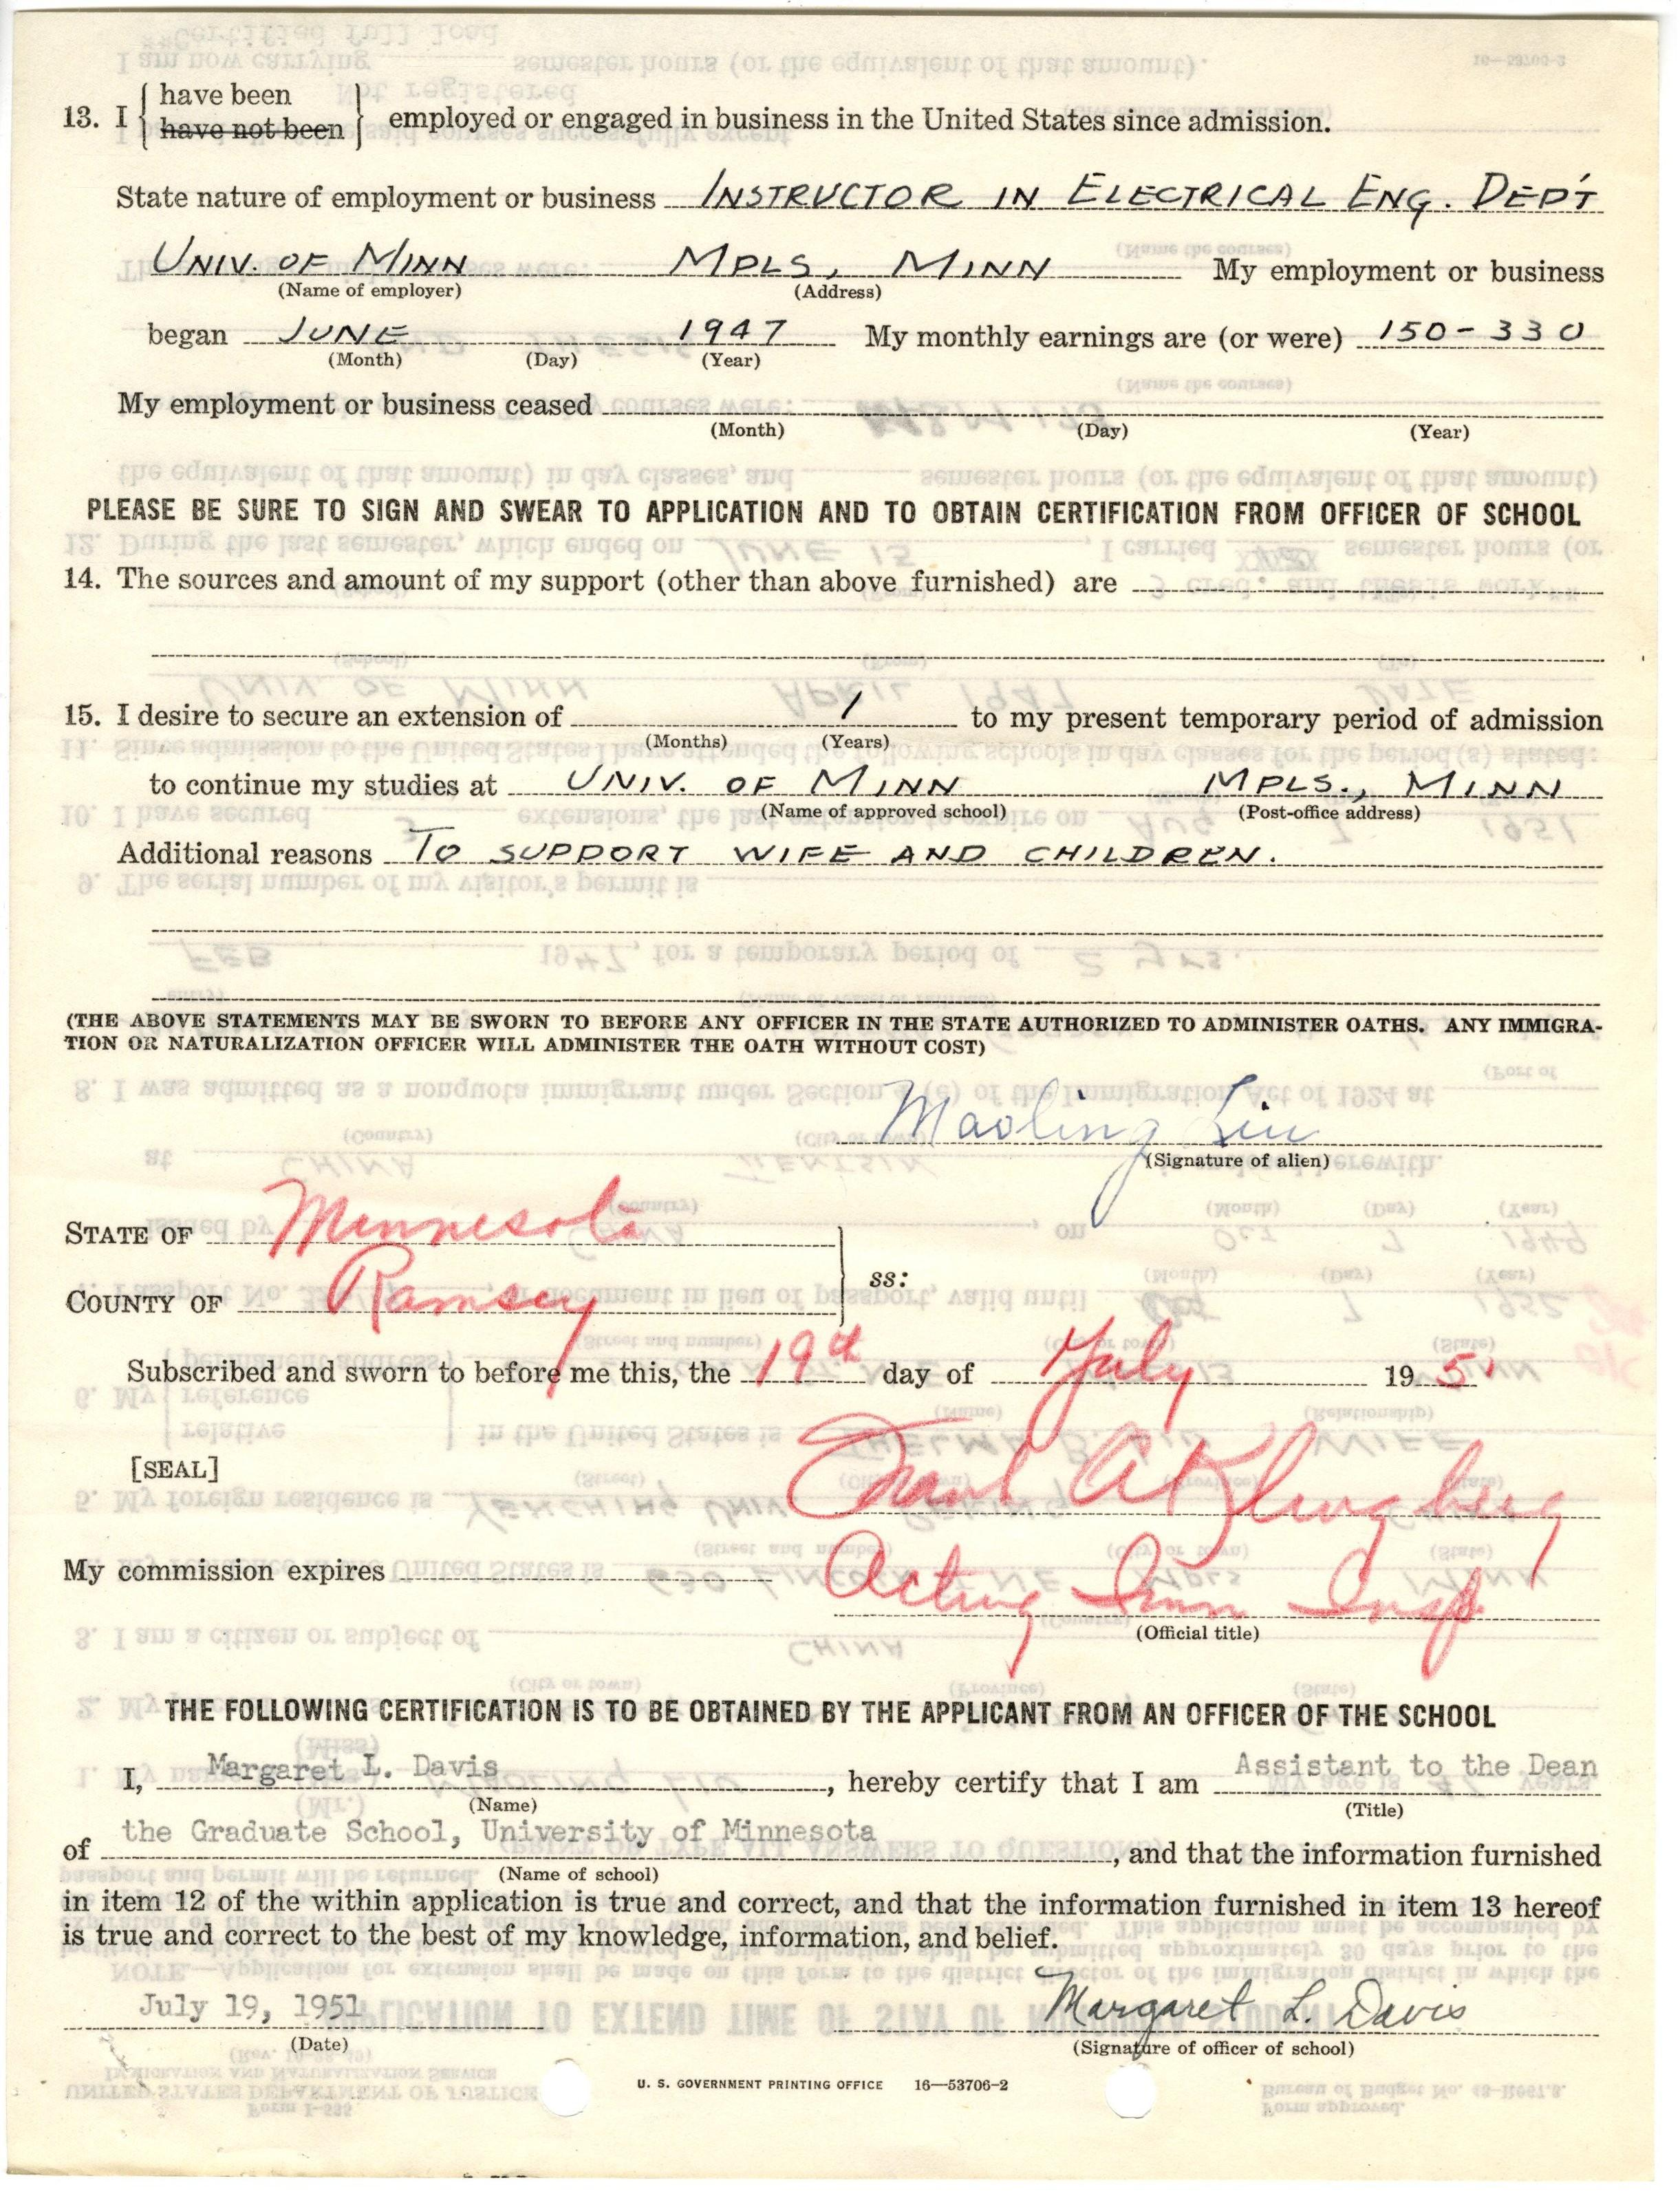 13. I { have been
have not been } employed or engaged in business in the United States since admission.
State nature of employment or business INSTRUCTOR IN ELECTRICAL ENG. DEP'T
UNIV. OF MINN MPLS, MINN My employment or business
(Name of employer) (Address)
began JUNE 1947 My monthly earnings are (or were) 150-330
(Month) (Day) (Year)
My employment or business ceased
(Month) (Day) (Year)
PLEASE BE SURE TO SIGN AND SWEAR TO APPLICATION AND TO OBTAIN CERTIFICATION FROM OFFICER OF SCHOOL
14. The sources and amount of my support (other than above furnished) are
15. I desire to secure an extension of 1 to my present temporary period of admission
(Months) (Years)
to continue my studies at UNIV. OF MINN MPLS., MINN
(Name of approved school) (Post-office address)
Additional reasons TO SUPPORT WIFE AND CHILDREN.
(THE ABOVE STATEMENTS MAY BE SWORN TO BEFORE ANY OFFICER IN THE STATE AUTHORIZED TO ADMINISTER OATHS. ANY IMMIGRA-
TION OR NATURALIZATION OFFICER WILL ADMINISTER THE OATH WITHOUT COST)
Maoling Liu
(Signature of alien)
STATE OF Minnesota
ss:
COUNTY OF Ramsey
Subscribed and sworn to before me this, the 19th day of July 1951
[SEAL] A Klingberg
My commission expires Acting Imm Insp
(Official title)
THE FOLLOWING CERTIFICATION IS TO BE OBTAINED BY THE APPLICANT FROM AN OFFICER OF THE SCHOOL
I, Margaret L. Davis, hereby certify that I am Assistant to the Dean
(Name) (Title)
of the Graduate School, University of Minnesota, and that the information furnished
(Name of school)
in item 12 of the within application is true and correct, and that the information furnished in item 13 hereof
is true and correct to the best of my knowledge, information, and belief.
July 19, 1951 Margaret L. Davis
(Date) (Signature of officer of school)
U. S. GOVERNMENT PRINTING OFFICE 16—53706-2